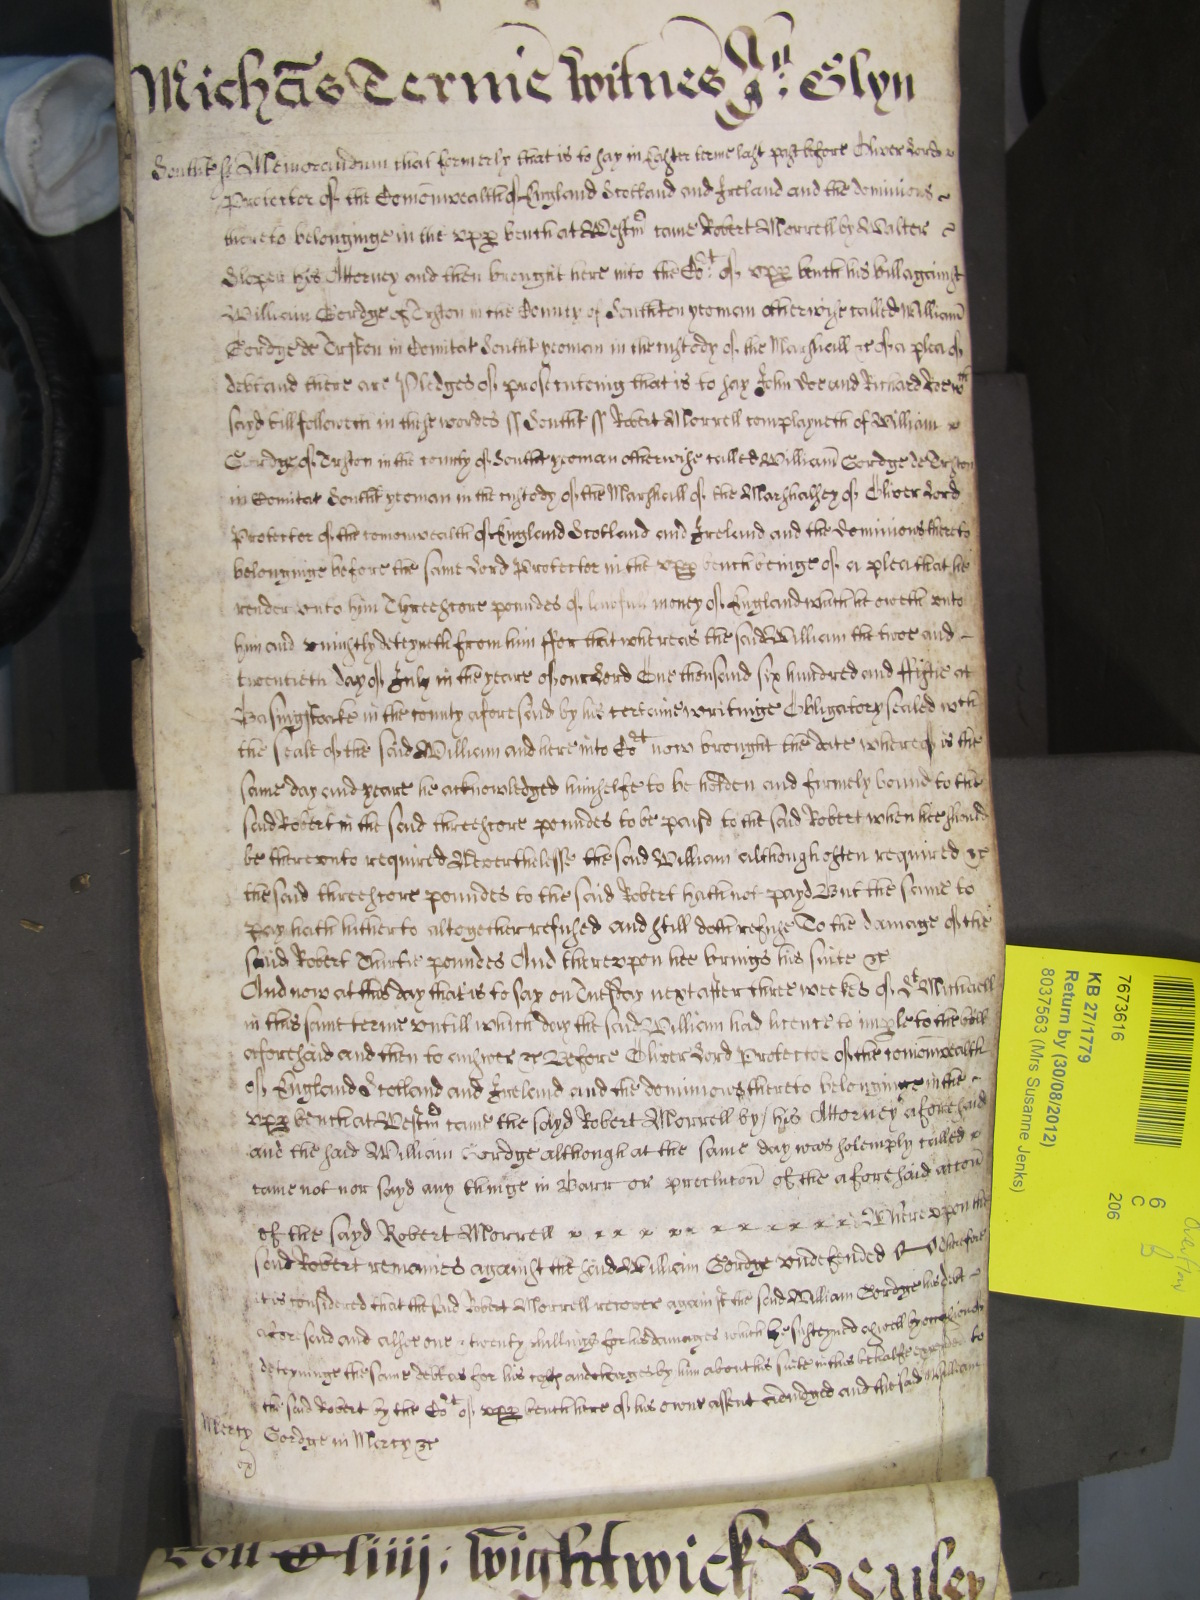 Michãs Terme witnes Jn: Glyn
Southt ss Memorandum that formerly that is to say in Easter terme last past before Oliver Lord
Protector of the Comonwealth of England Scotland and Ireland and the dominions
thereto belonginge in the upp bench at Westm came Robert Morrell by Walter
his Attorney and then brought here into the Cort of upp bench his bill against
William Gordge of in the County of Southten yeoman otherwise called William
Gordge de in Comitat Southt yeoman in the custody of the Marshall &c of a plea of
debt and there are Pledges of prosecuteing that is to say John Doe and Richard Roe wch
sayd bill followeth in these wordes ss Southt ss Robert Morrell complayneth of William
Gordge of in the county of Southt yeoman otherwise called William Gordge de
in Comitat Southt yeoman in the custody of the Marshall of the Marshalsey of Oliver Lord
Protector of the comonwealth of England Scotland and Ireland and the dominions thereto
belonginge before the same Lord Protector in the upp bench beinge of a plea that he
render unto him Threescore poundes of lawfull money of England which he oweth unto
him and uniustly deteyneth from him ffor that whereas the said William the twoe and
twentieth day of July in the yeare of our Lord One thousand six hundred and ffiftie at
Basingstoake in the county aforesaid by his certaine writinge Obligatory sealed wth
the seale of the said William and here into Cort now brought the date whereof is the
same day and yeare he acknowledged himselfe to be holden and firmely bound to the
said Robert in the said threescore poundes to be paid to the said Robert when hee should
be thereunto required Neverthelesse the said William although often required &c
the said threescore poundes to the said Robert hath not payd But the same to
pay hath hitherto altogether refused and still doth refuse To the damage of the
said Robert Thirtie poundes And thereupon hee brings his suite &c
And now at this day that is to say on Tuesday next after three weekes of St Michaell
in this same terme untill which day the said William had licence to imple to the bill
aforesaid and then to answer &c Before Oliver Lord Protector of the comonwealth
of England Scotland and Ireland and the dominions thereto belonginge in the
upp bench at Westm came the sayd Robert Morrell by his Attorney aforesaid
and the said William Gordge although at the same day was solemply called
came not nor sayd any thinge in Barr or preclucon of the aforesaid accon
of the sayd Robert Morrell Whereupon the
said Robert remaines against the said William Gordge undefended Therefore
it is considered that the said Robert Morrell recover against the said William Gordge his debt
aforesaid and alsoe one & twenty shillings for his damages which he susteyned aswell by occasion of
deteyninge the same debt as for his costs and charges by him about his suite in this behalfe expended to
the said Robert by the Cort of upp bench here of his owne assent adiudged and the said William
Mercy Gordge in Mercy &c
liiij: Wightwick
7673616
KB 27/1779
Return by (30/08/2012)
8037563 (Mrs Susanne Jenks)
6
C
206